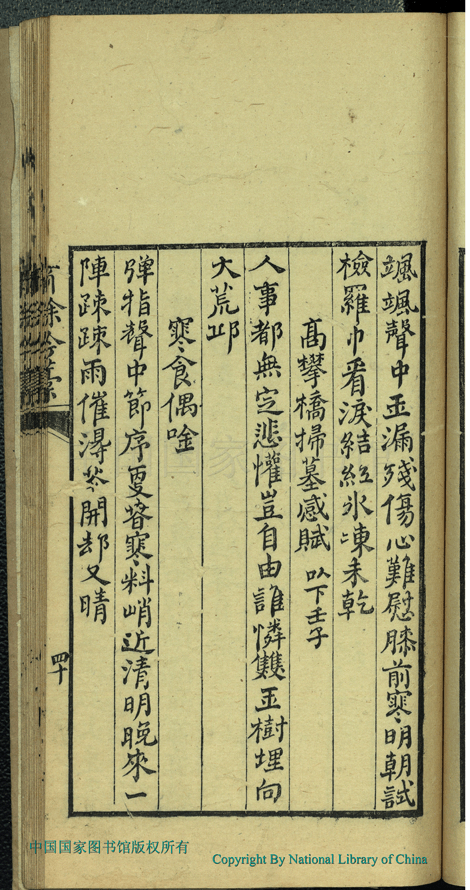 颯颯聲中玉漏殘傷心難慰膝前寒明朝試
檢羅巾看淚結紅氷凍未乾
高攀橋掃墓感賦 以下壬子
人事都無定悲懽豈自由誰憐雙玉樹埋向
大荒邱
寒食偶唫
彈指聲中節序更春寒料峭近清明晚來一
陣疎疎雨催得花開却又晴
餘吟藁
四十
中国国家图书馆版权所有
Copyright By National Library of China